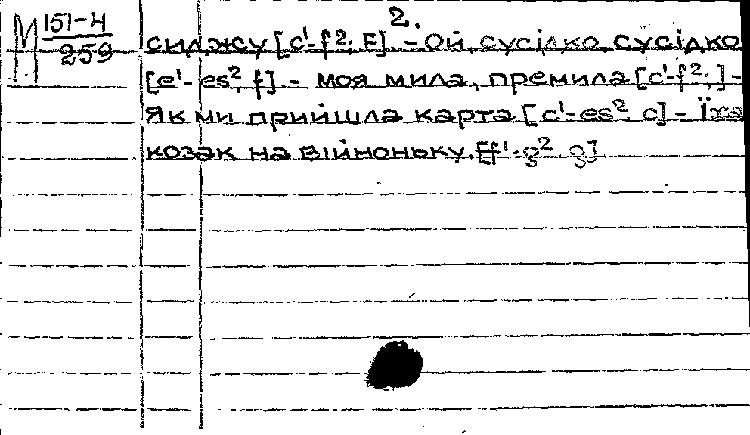 2.
М 151-4
259
сиджу [c¹-f²; F]. - Ой, сусідко, сусідко
[e¹-es², f]. - моя мила, премила [c¹-f²; ] -
Як ми прийшла карта [c¹-es² c] - Їха
козак на війноньку. [f¹-g² g]